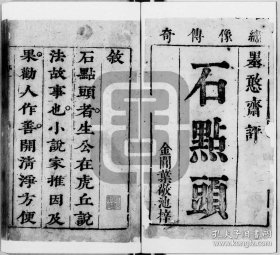 繡像傳奇
墨憨齋評
石點頭
金閶葉敬池梓
敘
石點頭者生公在虎丘説
法故事也小説家推因及
果勸人作善開清淨方便